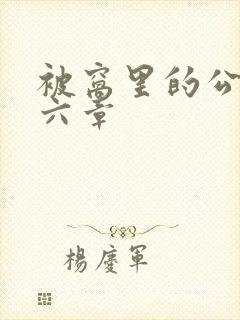 被窝里的公
六章
楊慶軍